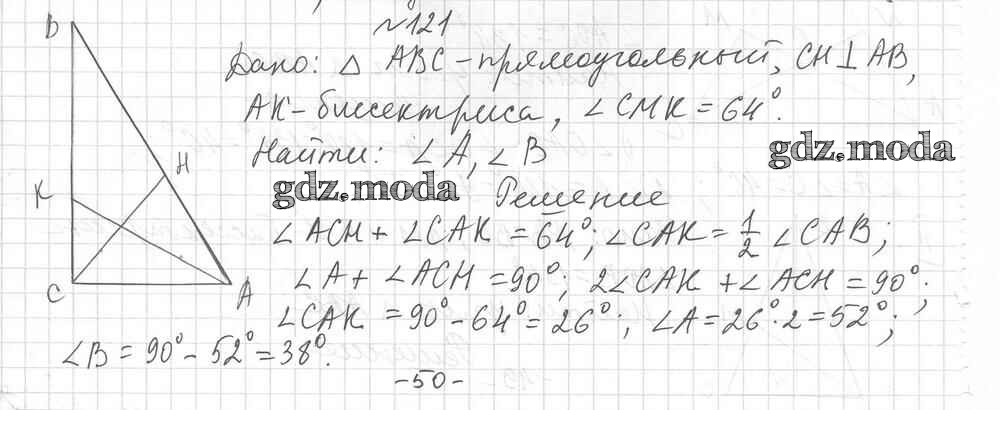 №121
B
Дано: △ ABC – прямоугольный, CH⊥AB,
AK – биссектриса, ∠CMK = 64°.
Найти: ∠A, ∠B
gdz.moda
H
K
gdz.moda
Решение
∠ACH + ∠CAK = 64°; ∠CAK = 1/2 ∠CAB;
C
A
∠A + ∠ACH = 90°; 2∠CAK + ∠ACH = 90°;
∠CAK = 90° – 64° = 26°; ∠A = 26°·2 = 52°;
∠B = 90° – 52° = 38°.
-50-